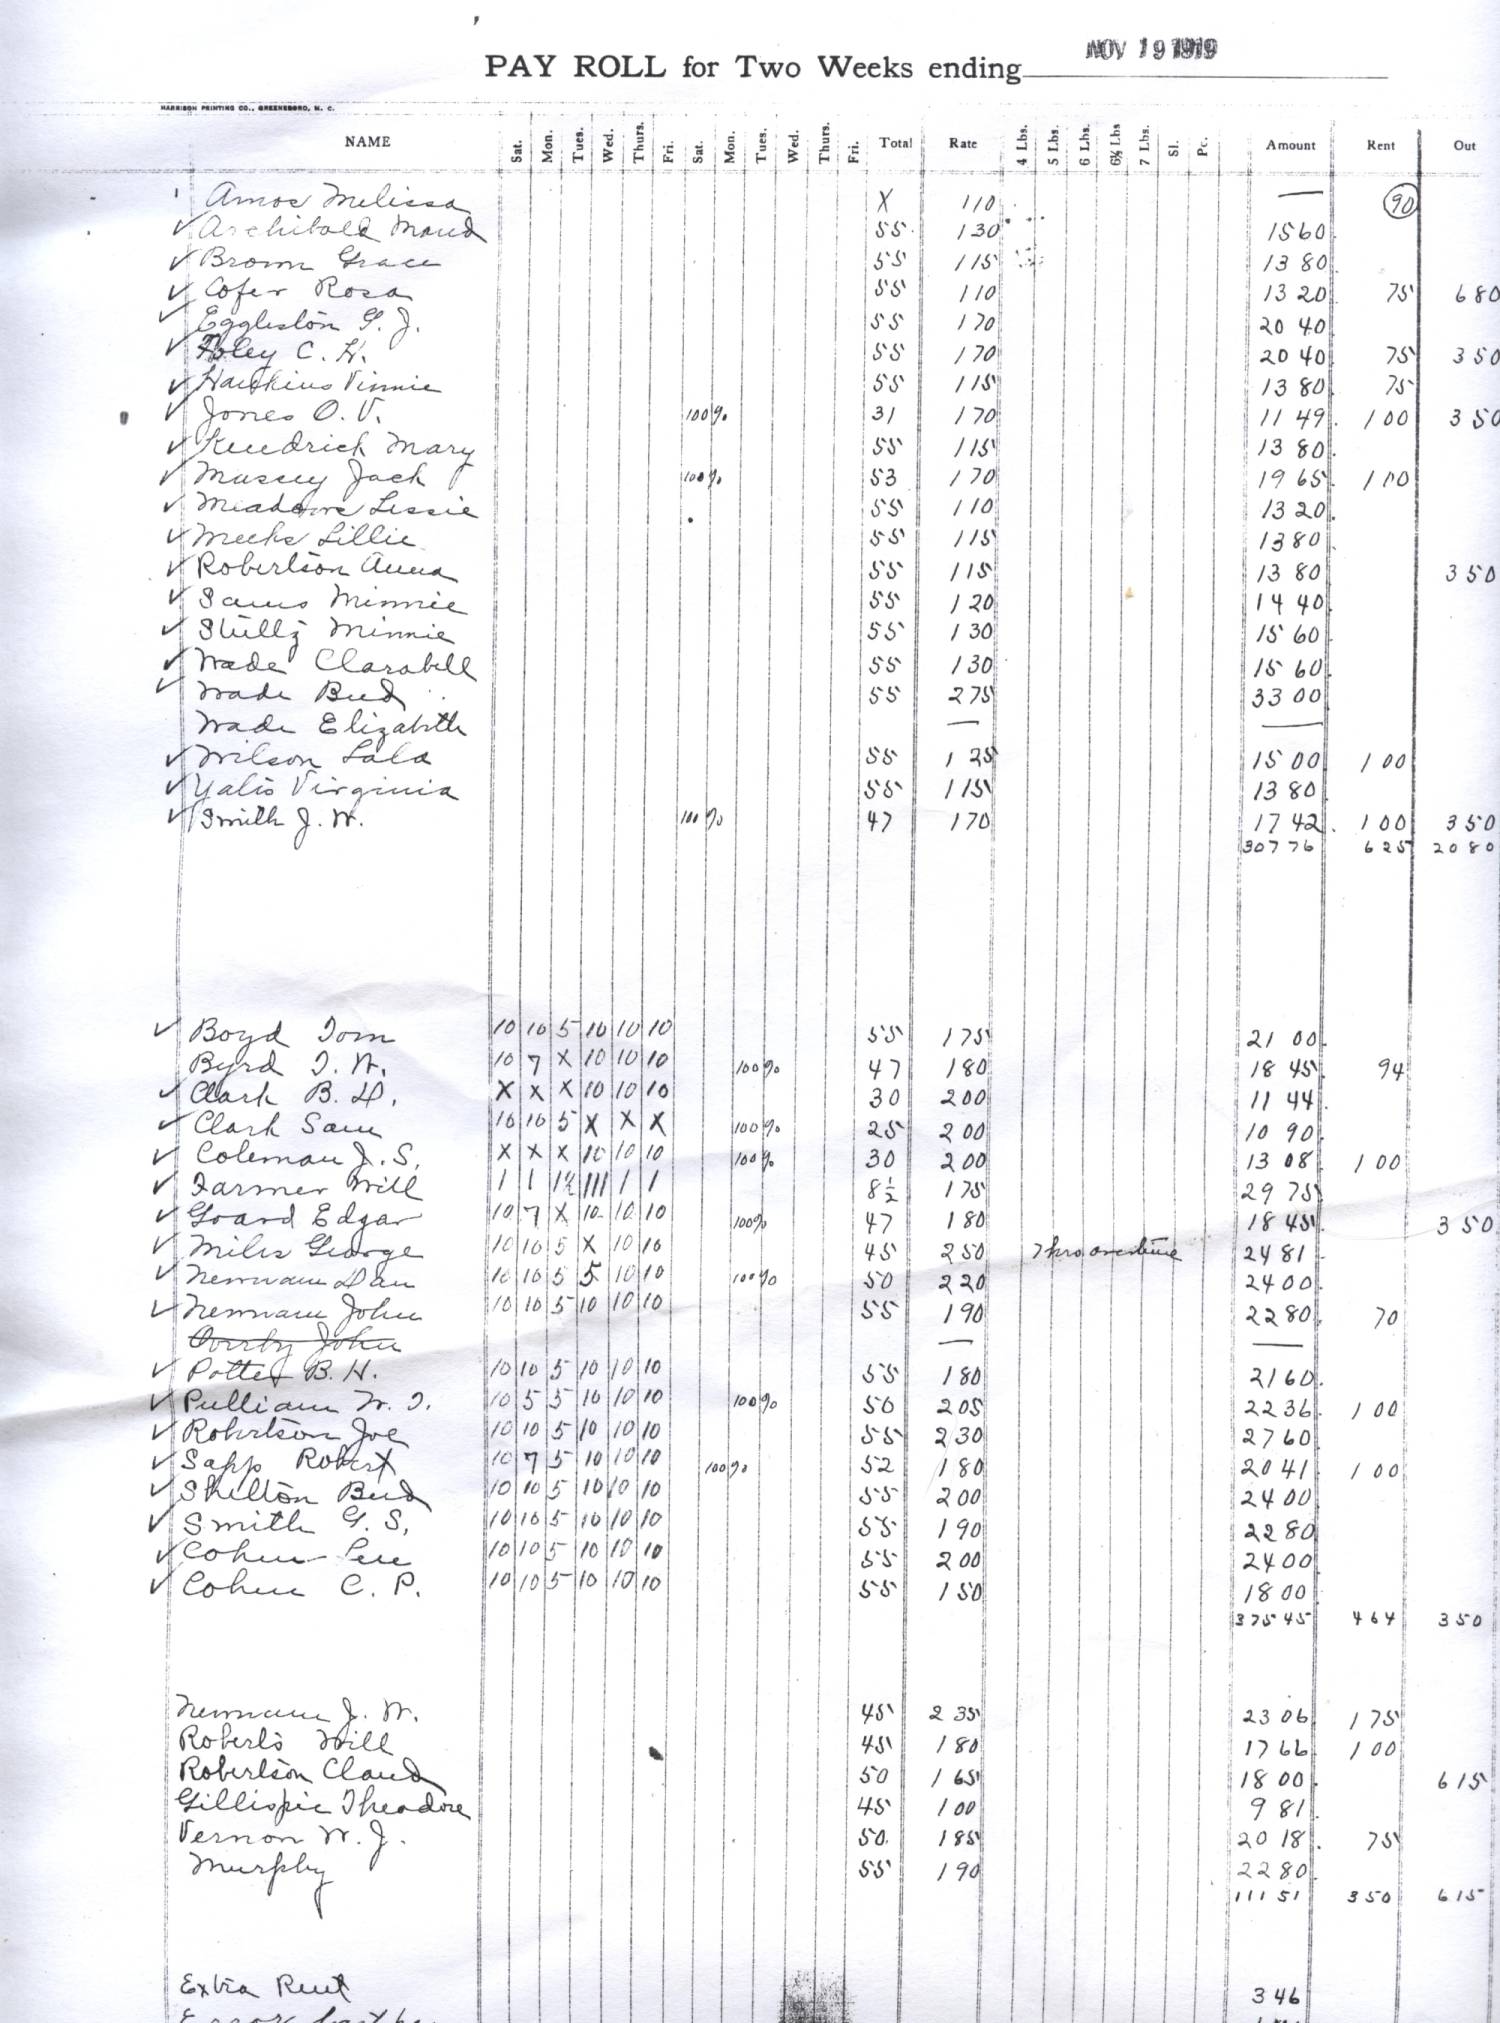 NOV 19 1919
PAY ROLL for Two Weeks ending
HARRISON PRINTING CO., GREENSBORO, N. C.
NAME Sat. Mon. Tues. Wed. Thurs. Fri. Sat. Mon. Tues. Wed. Thurs. Fri. Total Rate 4 Lbs. 5 Lbs. 6 Lbs. 6½ Lbs 7 Lbs. Sl. Pc. Amount Rent Out
Amos Melissa X 110 — 90
✓ Archibald Maud 55 130 15 60
✓ Brown Grace 55 115 13 80
✓ Cofer Rosa 55 110 13 20 75 6 80
✓ Eggleston G. J. 55 170 20 40
✓ Foley C. H. 55 170 20 40 75 3 50
✓ Hawkins Vinnie 55 115 13 80 75
✓ Jones O. V. 100% 31 170 11 49 1 00 3 50
✓ Kendrick Mary 55 115 13 80
✓ Massey Jack 100% 53 170 19 65 1 00
✓ Meadows Lessie 55 110 13 20
✓ Meeks Lillie 55 115 13 80
✓ Robertson Anna 55 115 13 80 3 50
✓ Sams Minnie 55 120 14 40
✓ Stultz Minnie 55 130 15 60
✓ Wade Clarabell 55 130 15 60
✓ Wade Bud 55 275 33 00
Wade Elizabeth — —
✓ Wilson Lala 55 125 15 00 1 00
✓ Yatis Virginia 55 115 13 80
✓ Smith J. W. 100% 47 170 17 42 1 00 3 50
307 76 6 25 20 80
✓ Boyd Tom 10 10 5 10 10 10 55 175 21 00
Byrd T. W. 10 7 X 10 10 10 100% 47 180 18 45 94
✓ Clark B. D. X X X 10 10 10 30 200 11 44
✓ Clark Sam 10 10 5 X X X 100% 25 200 10 90
✓ Coleman J. S. X X X 10 10 10 100% 30 200 13 08 1 00
✓ Farmer Will 1 1 1½ 111 1 1 8½ 175 29 75
✓ Goard Edgar 10 7 X 10 10 10 100% 47 180 18 45 3 50
✓ Miles George 10 10 5 X 10 10 45 250 7 hrs overtime 24 81
✓ Newnam Dan 10 10 5 5 10 10 100% 50 220 24 00
✓ Newnam John 10 10 5 10 10 10 55 190 22 80 70
Overby John — —
✓ Potter B. H. 10 10 5 10 10 10 55 180 21 60
✓ Pulliam W. T. 10 5 5 10 10 10 100% 50 205 22 36 1 00
✓ Robertson Joe 10 10 5 10 10 10 55 230 27 60
✓ Sapp Robert 10 7 5 10 10 10 100% 52 180 20 41 1 00
✓ Shelton Bud 10 10 5 10 10 10 55 200 24 00
✓ Smith G. S. 10 10 5 10 10 10 55 190 22 80
✓ Cohen Lee 10 10 5 10 10 10 55 200 24 00
✓ Cohen C. P. 10 10 5 10 10 10 55 150 18 00
375 45 4 64 3 50
Newnam J. W. 45 235 23 06 1 75
Roberts Will 45 180 17 66 1 00
Robertson Claud 50 165 18 00 6 15
Gillispie Theodore 45 100 9 81
Vernon W. J. 50 185 20 18 75
Murphy 55 190 22 80
111 51 3 50 6 15
Extra Rent 3 46